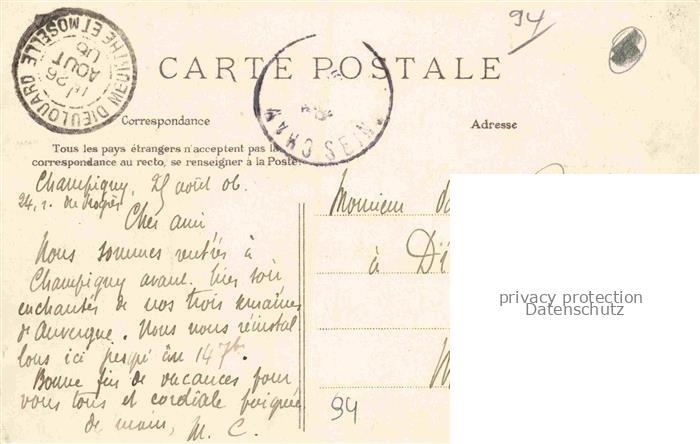 94
CARTE POSTALE
DIEULOUARD
MEURTHE ET MOSELLE
26
AOUT
06
CHAM
SEIN
Correspondance
Adresse
Tous les pays étrangers n'acceptent pas la
correspondance au recto, se renseigner à la Poste.
Champigny, 25 août 06.
24, r. du Progrès
Cher ami
Nous sommes rentrés à
Champigny avant hier soir
enchantés de nos trois semaines
d'Auvergne. Nous nous réinstal
lons ici jusqu'au 14 7bre.
Bonne fin de vacances pour
vous tous et cordiale poignée
de main, M. C.
Monsieur
à
94
privacy protection
Datenschutz